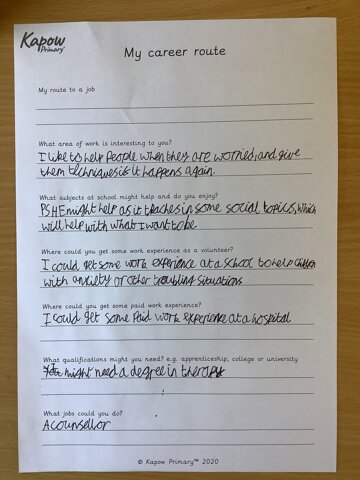 Kapow
Primary™
My career route
My route to a job
What area of work is interesting to you?
I like to help people when they are worried, and give
them techniques if it happens again.
What subjects at school might help and do you enjoy?
PSHE might help as it teaches in some social topics, which
will help with what I want to be.
Where could you get some work experience as a volunteer?
I could get some work experience at a school to help
with anxiety or other troubling situations
Where could you get some paid work experience?
I could get some Paid work experience at a hospital
What qualifications might you need? e.g. apprenticeship, college or university
might need a degree in therapy
What jobs could you do?
A counsellor
© Kapow Primary™ 2020